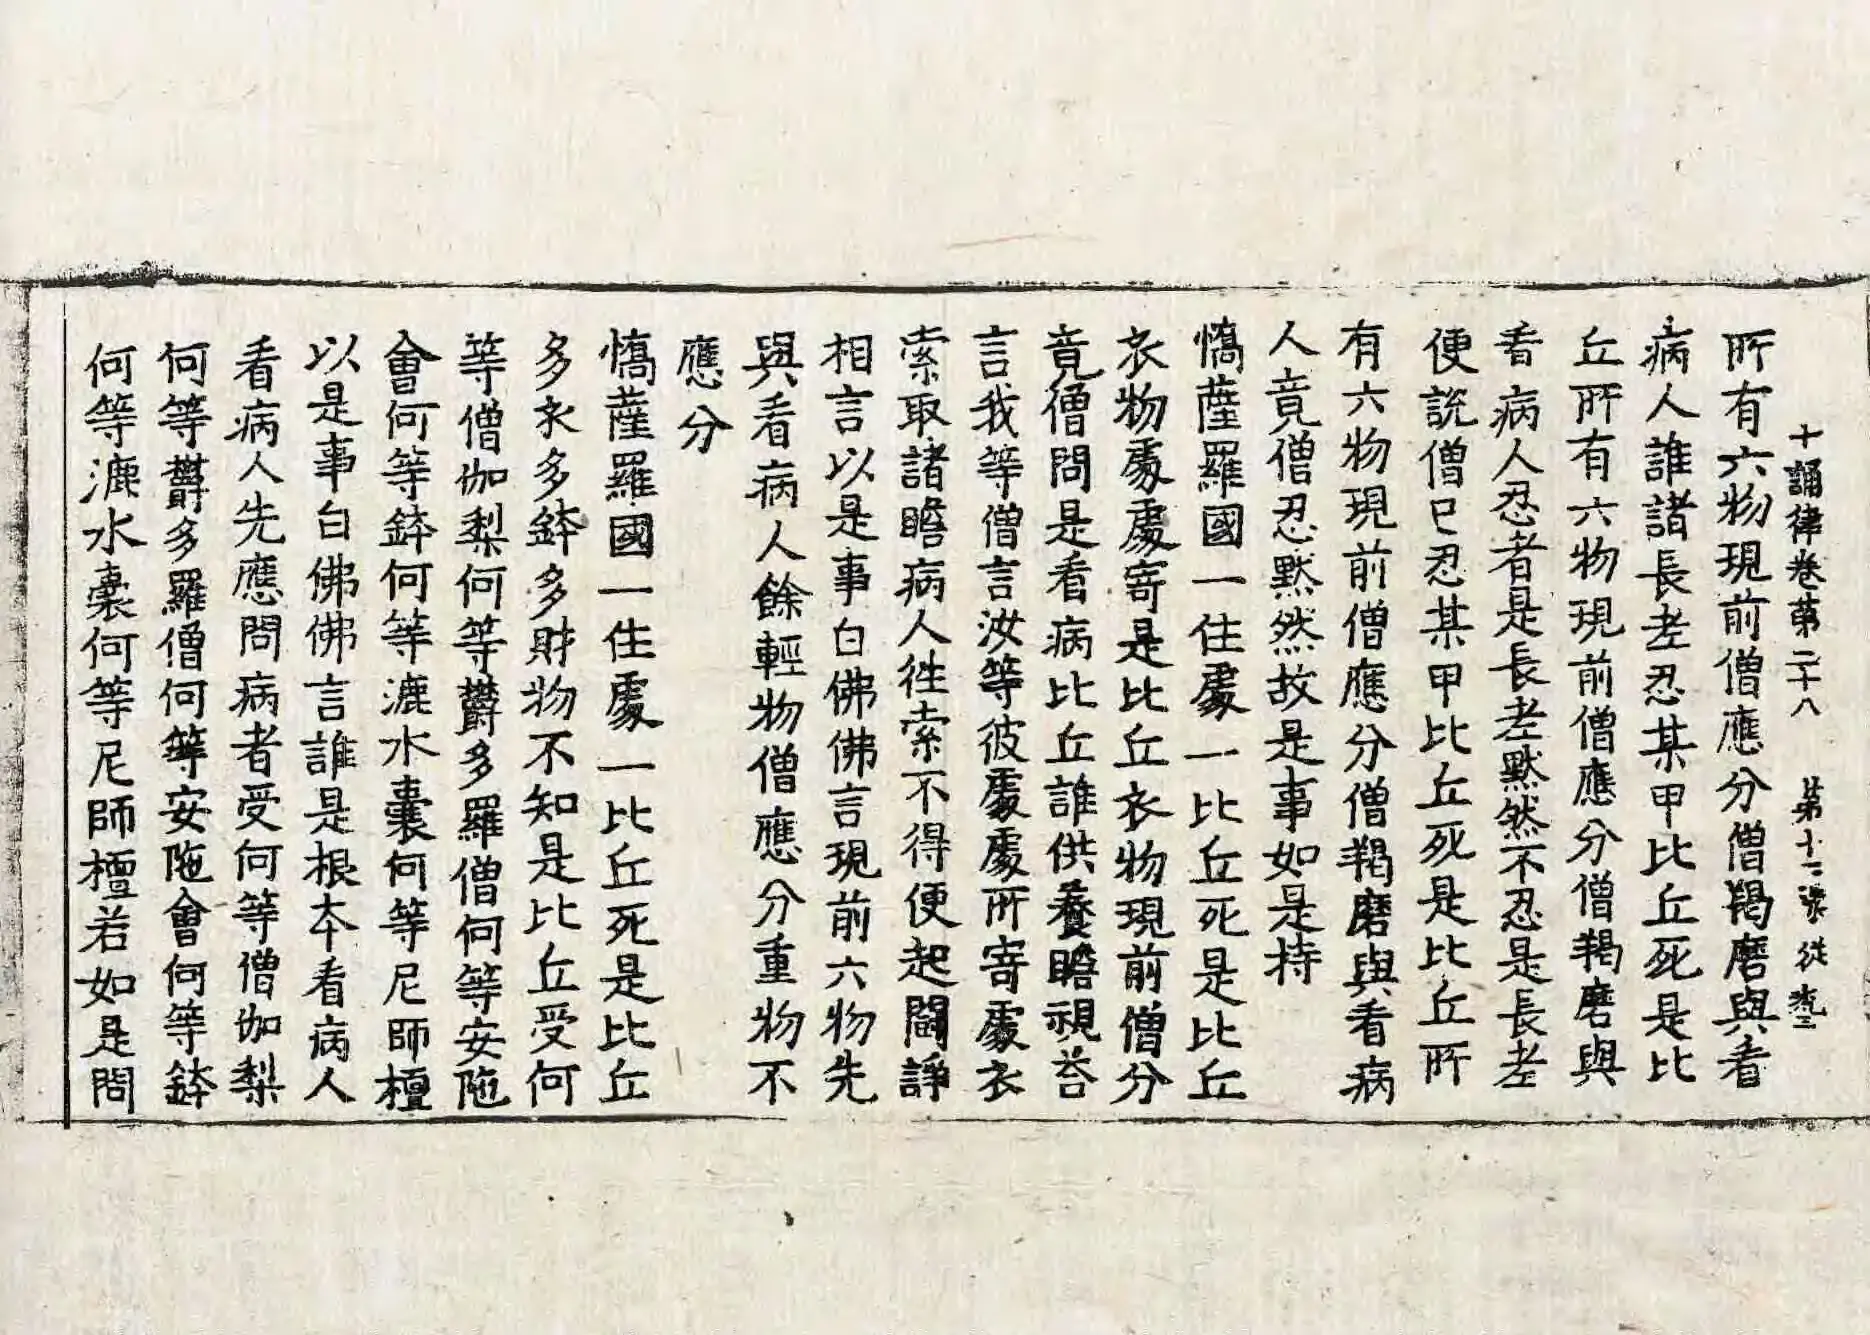 十誦律卷第二十八 第十二張 従
所有六物現前僧應分僧羯磨與看
病人誰諸長老忍某甲比丘死是比
丘所有六物現前僧應分僧羯磨與
看病人忍者是長老默然不忍是長老
便説僧已忍某甲比丘死是比丘所
有六物現前僧應分僧羯磨與看病
人竟僧忍默然故是事如是持
憍薩羅國一住處一比丘死是比丘
衣物處處寄是比丘衣物現前僧分
竟僧問是看病比丘誰供養瞻視荅
言我等僧言汝等彼處處所寄處衣
索取諸瞻病人徃索不得便起鬪諍
相言以是事白佛佛言現前六物先
與看病人餘輕物僧應分重物不
應分
憍薩羅國一住處一比丘死是比丘
多衣多鉢多財物不知是比丘受何
等僧伽梨何等欝多羅僧何等安陁
會何等鉢何等漉水囊何等尼師檀
以是事白佛佛言誰是根夲看病人
看病人先應問病者受何等僧伽梨
何等欝多羅僧何等安陁會何等鉢
何等漉水囊何等尼師檀若如是問